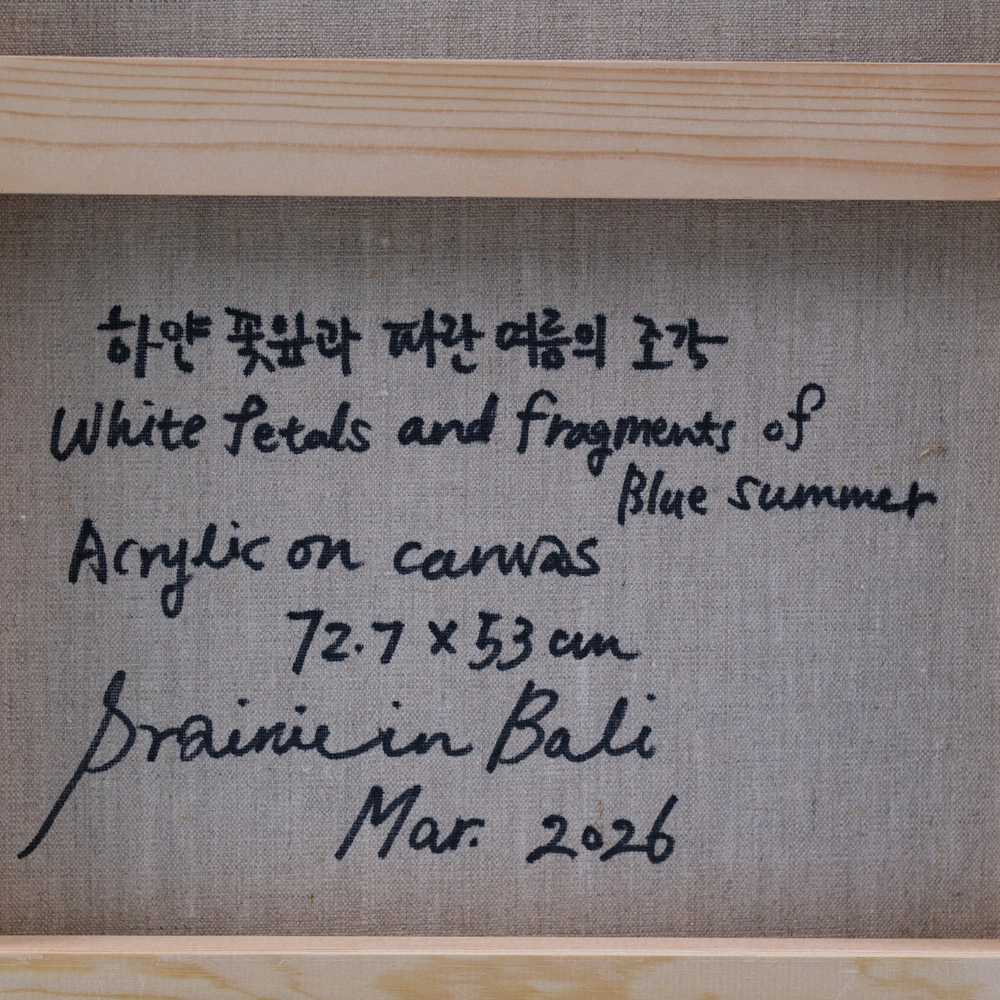 하얀 꽃잎과 파란 여름의 조각
White Petals and fragments of
Blue summer
Acrylic on canvas
72.7 x 53 cm
in Bali
Mar. 2026